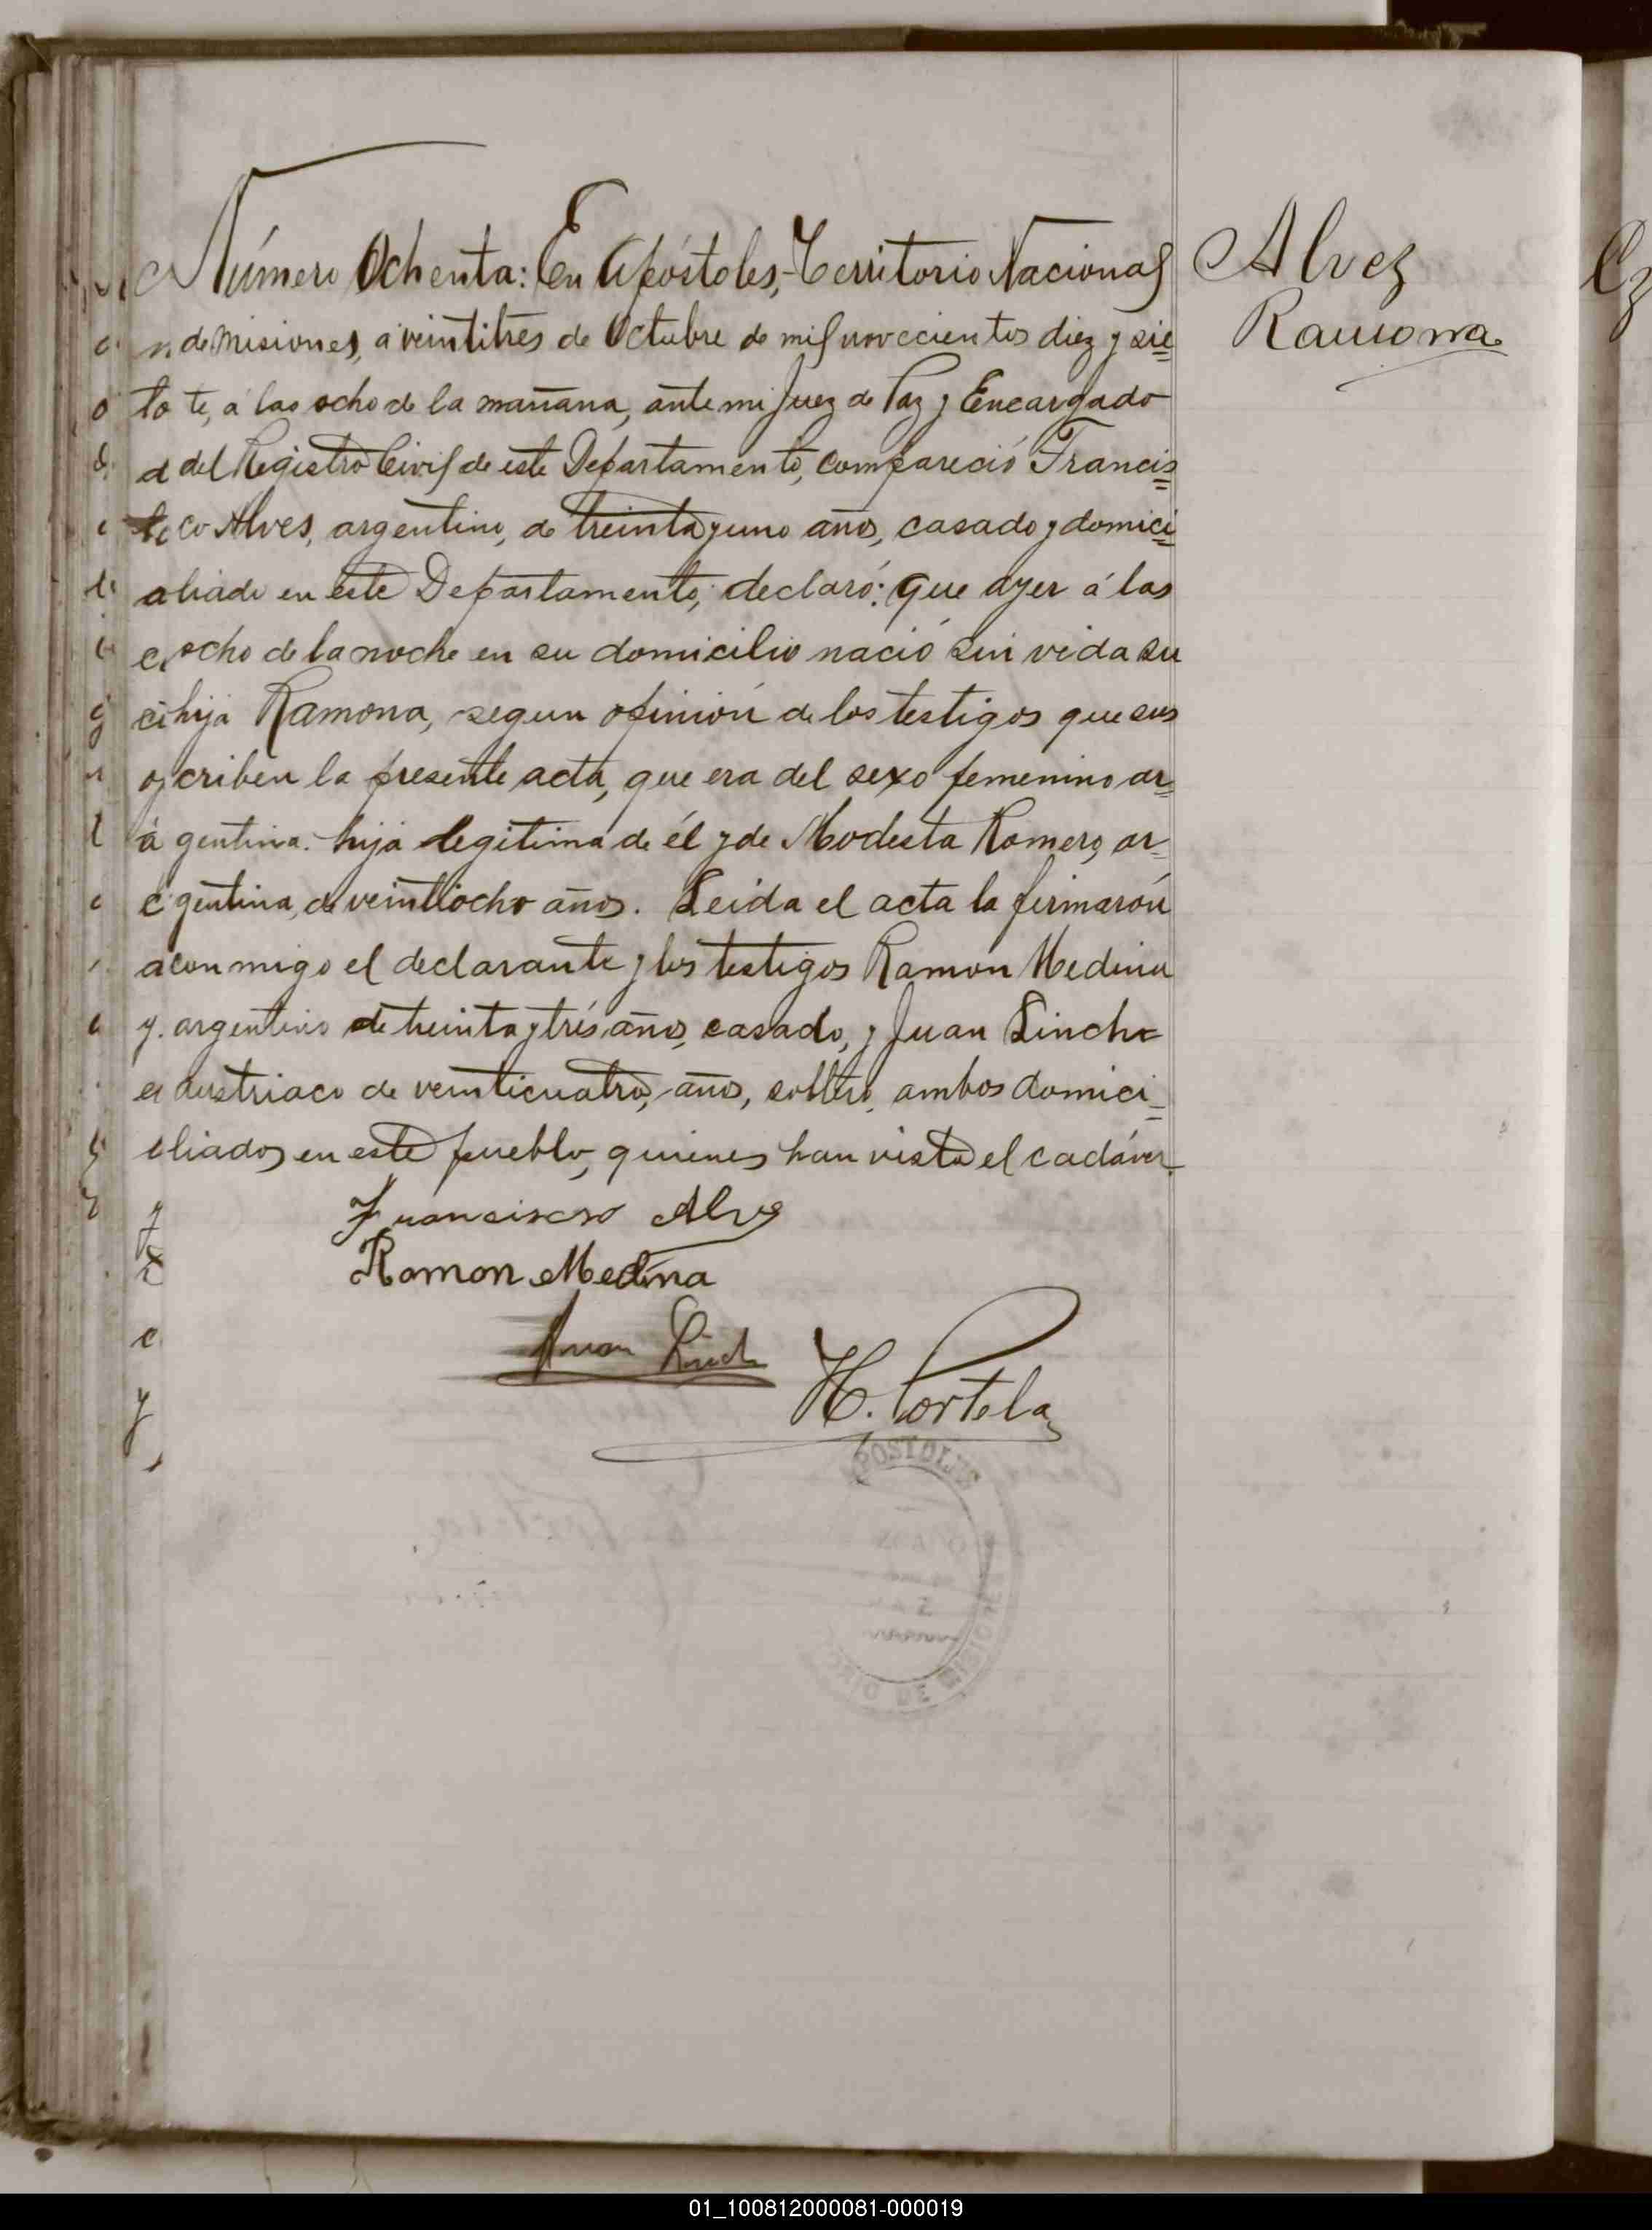 Número Ochenta: En Apóstoles, Territorio Nacional
de Misiones, a veintitres de Octubre de mil novecientos diez y sie=
te, á las ocho de la mañana, ante mi Juez de Paz y Encargado
del Registro Civil de este Departamento, compareció Francis=
co Alves, argentino, de treinta y uno años, casado y domici=
liado en este Departamento; declaró: que ayer á las
ocho de la noche en su domicilio nació sin vida su
hija Ramona, segun opinión de los testigos que sus
criben la presente acta, que era del sexo femenino ar=
gentina. hija legitima de él y de Modesta Romero, ar=
gentina, de veintiocho años. Leida el acta la firmarón
conmigo el declarante y los testigos Ramon Medina
argentino de treinta y trés años, casado, y Juan Linch
austriaco de veinticuatro, años, soltero, ambos domici=
liados en este pueblo, quienes han visto el cadáver.
Alvez
Ramona
Francisco Alves
Ramon Medina
Juan Linch
H. Portela
APOSTOLES
DE MISIONES
01_100812000081-000019